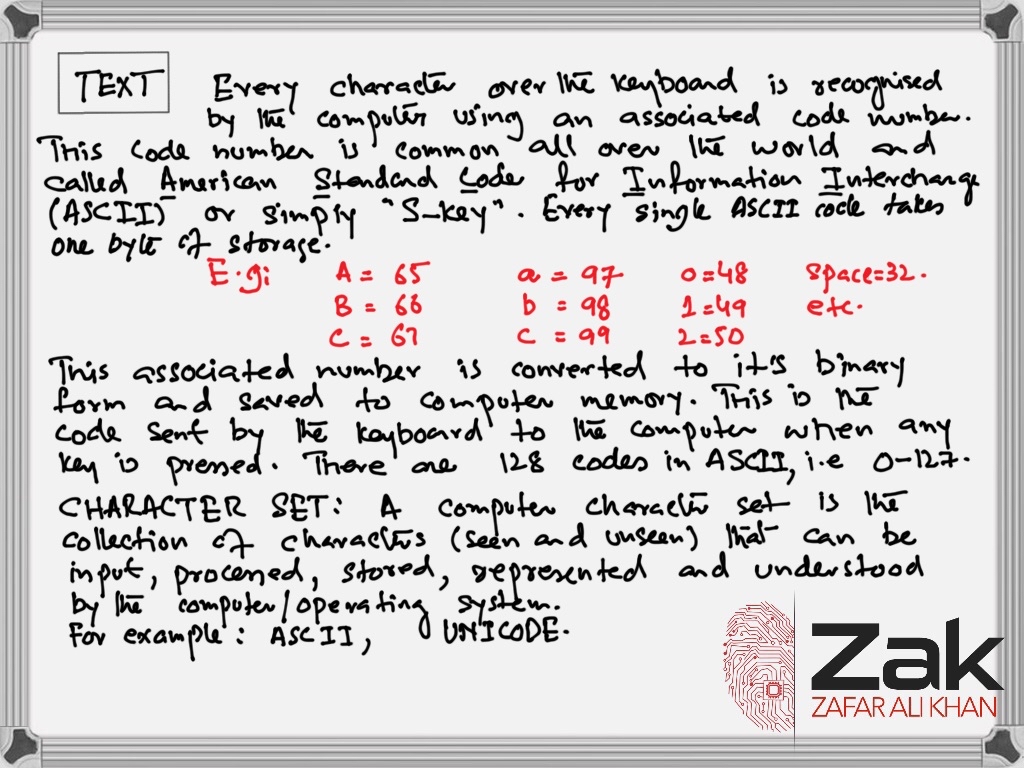 TEXT Every character over the keyboard is recognised
by the computer using an associated code number.
This code number is common all over the world and
called American Standard Code for Information Interchange
(ASCII) or simply "S-key". Every single ASCII code takes
one byte of storage.
E.g: A = 65 a = 97 0=48 space=32.
B = 66 b = 98 1=49 etc.
C = 67 c = 99 2=50
This associated number is converted to it's binary
form and saved to computer memory. This is the
code sent by the keyboard to the computer when any
key is pressed. There are 128 codes in ASCII, i.e 0-127.
CHARACTER SET: A computer character set is the
collection of characters (seen and unseen) that can be
input, processed, stored, represented and understood
by the computer/operating system.
For example: ASCII, UNICODE.
Zak
ZAFAR ALI KHAN